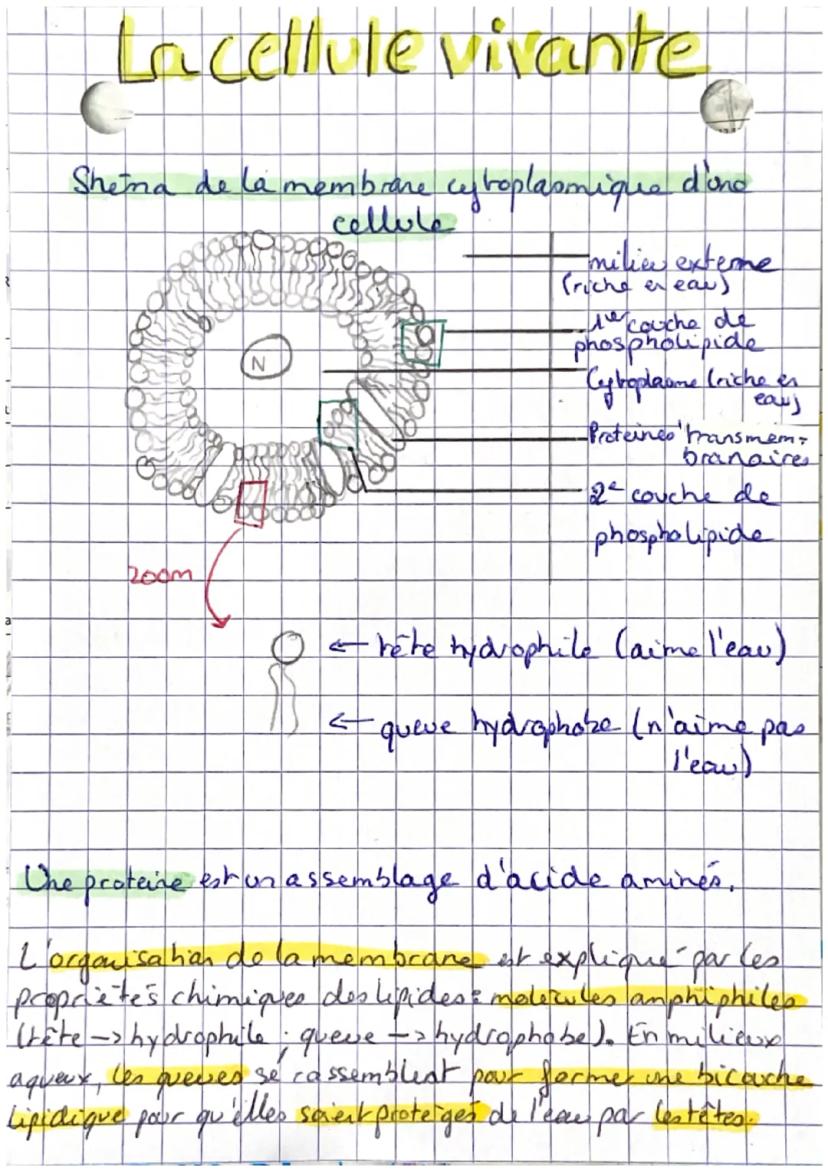 La cellule vivante
Shéma de la membrane cytoplasmique d'une
cellule
milieu externe
(riche en eau)
1ere couche de
phospholipide
Cytoplasme (riche en
eau)
Proteines transmem-
branaires
2e couche de
phospholipide
N
zoom
← tête hydrophile (aime l'eau)
← queue hydrophobe (n'aime pas
l'eau)
Une proteine est un assemblage d'acide aminés.
L'organisation de la membrane est expliqué par les
propriètés chimiques des lipides : molécules amphiphiles
(tête -> hydrophile ; queue -> hydrophobe). En milieux
aqueux, les queues se rassemblent pour former une bicouche
lipidique pour qu'elles soient protégés de l'eau par les têtes.